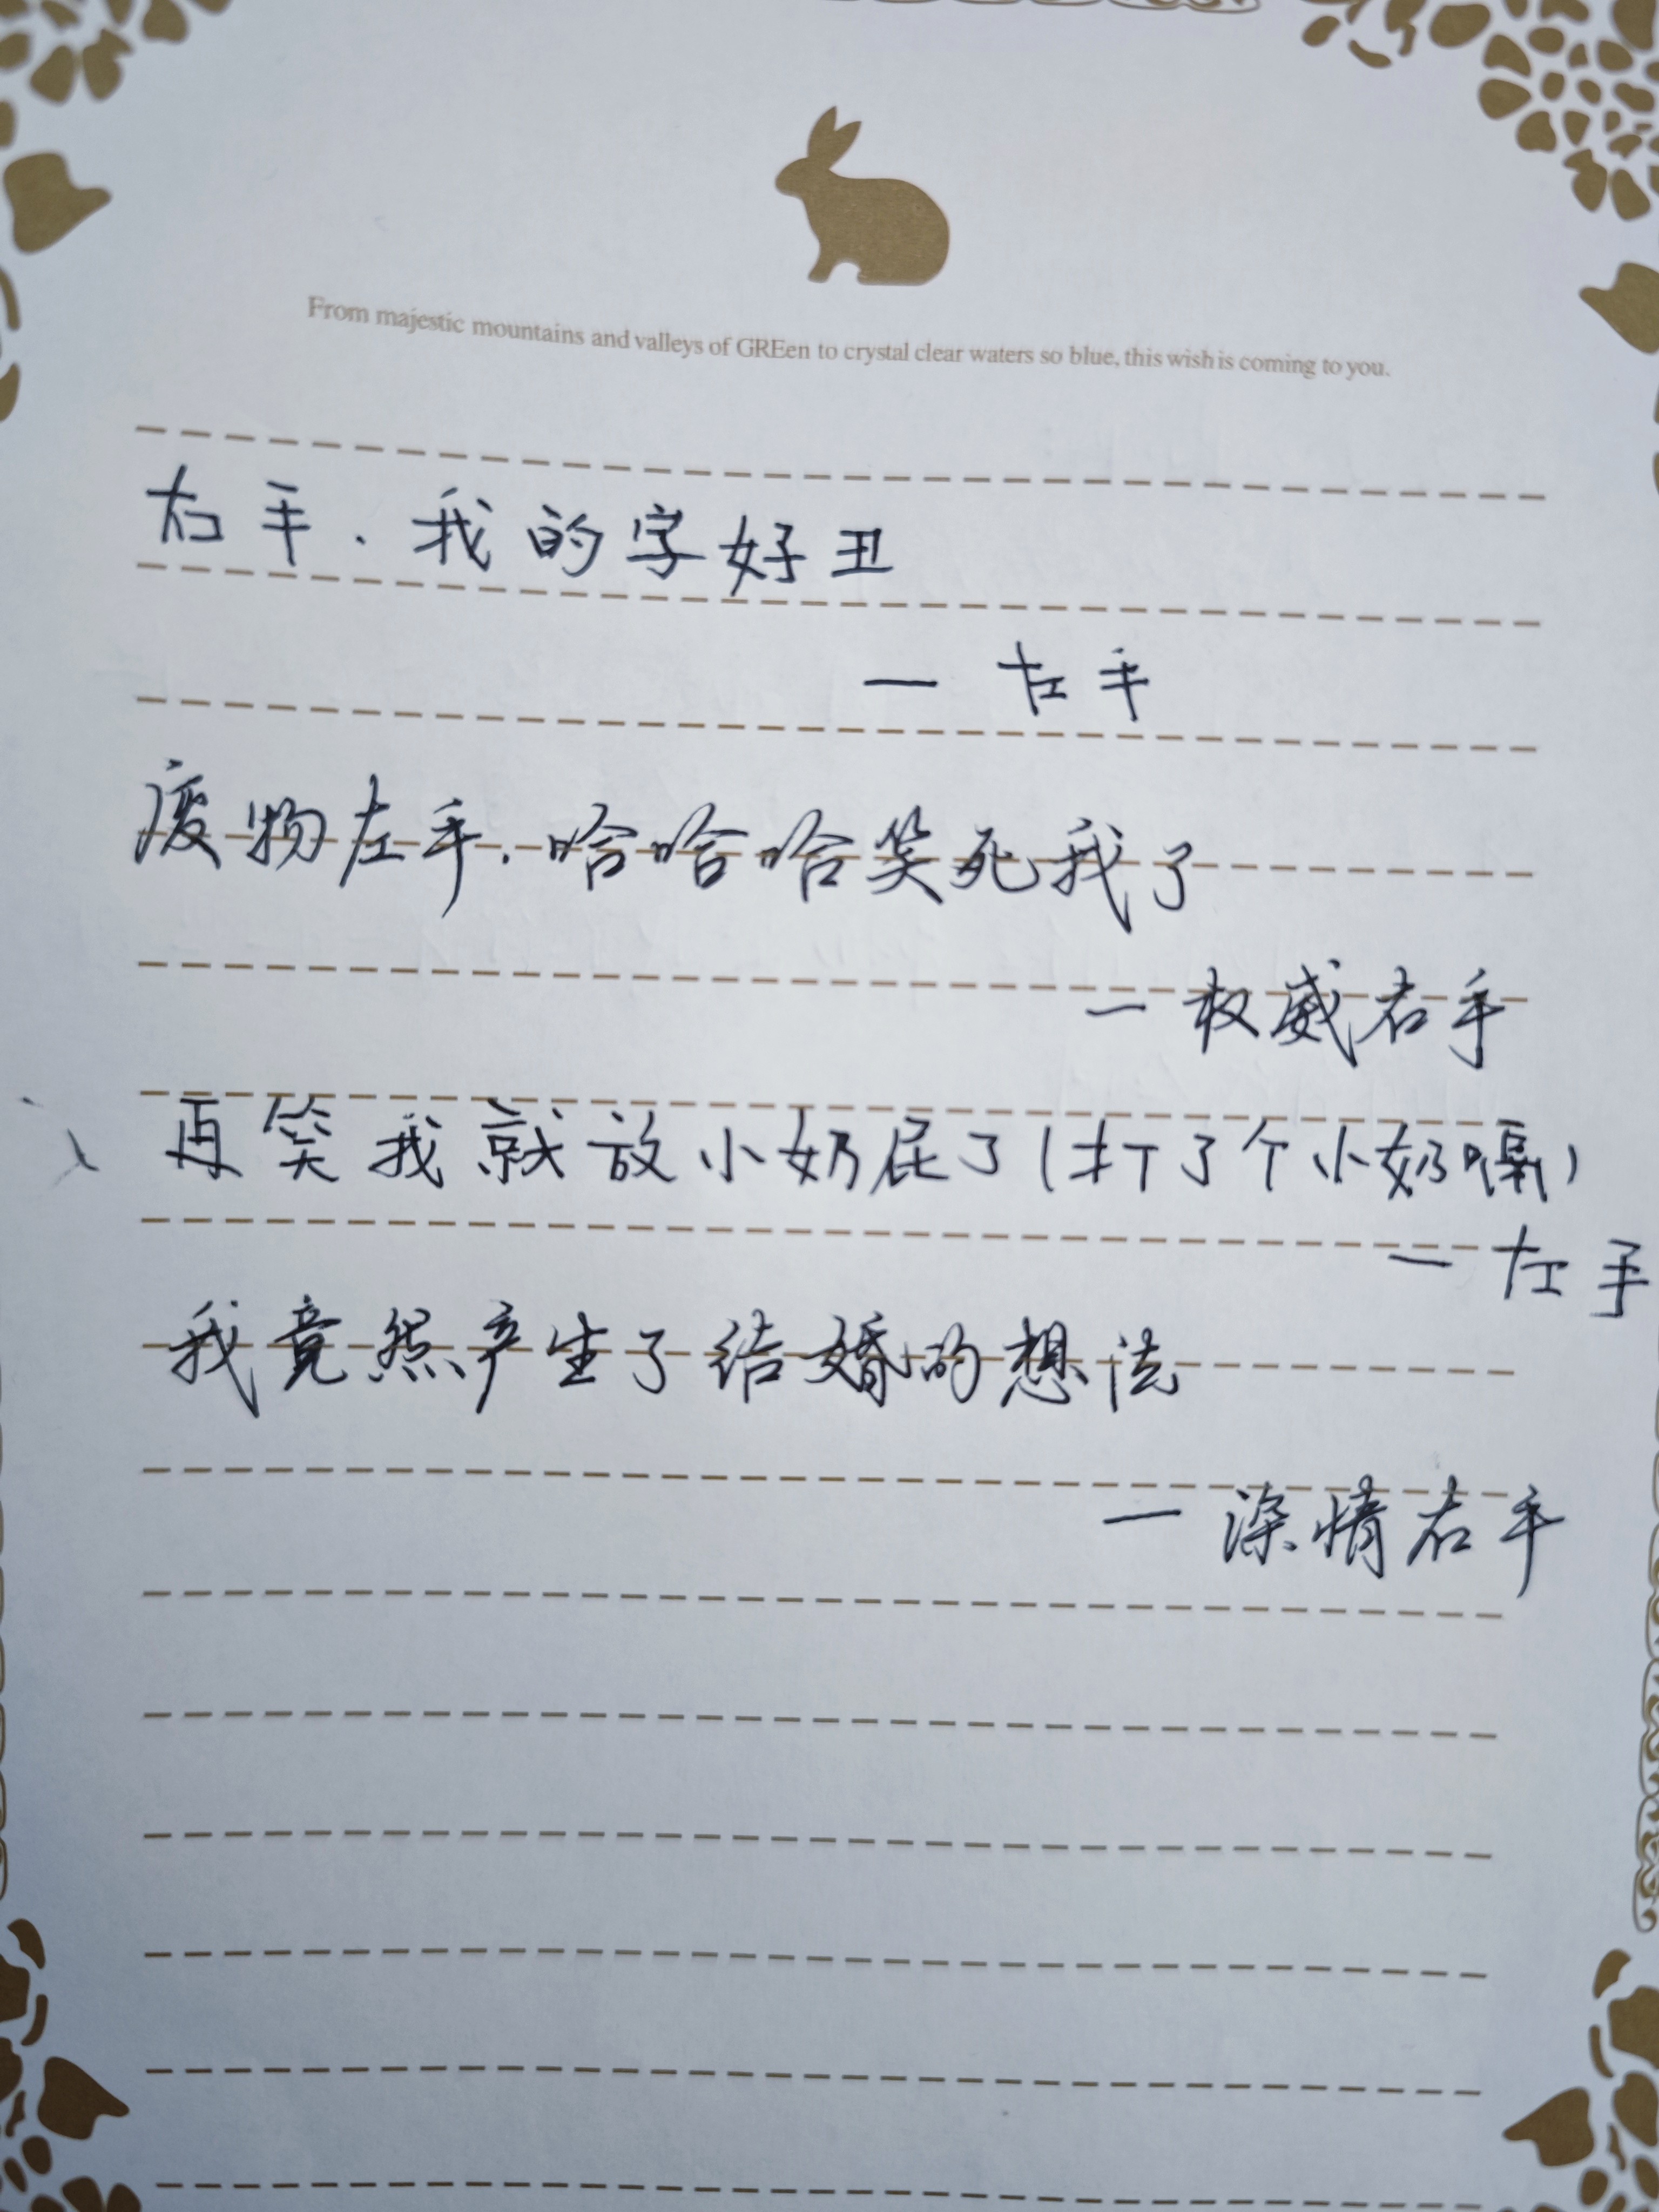 From majestic mountains and valleys of GREen to crystal clear waters so blue, this wish is coming to you.
右手.我的字好丑
— 左手
废物左手.哈哈哈笑死我了
— 权威右手
再笑我就放小奶屁了(打了个小奶嗝)
— 左手
我竟然产生了结婚的想法
— 深情右手